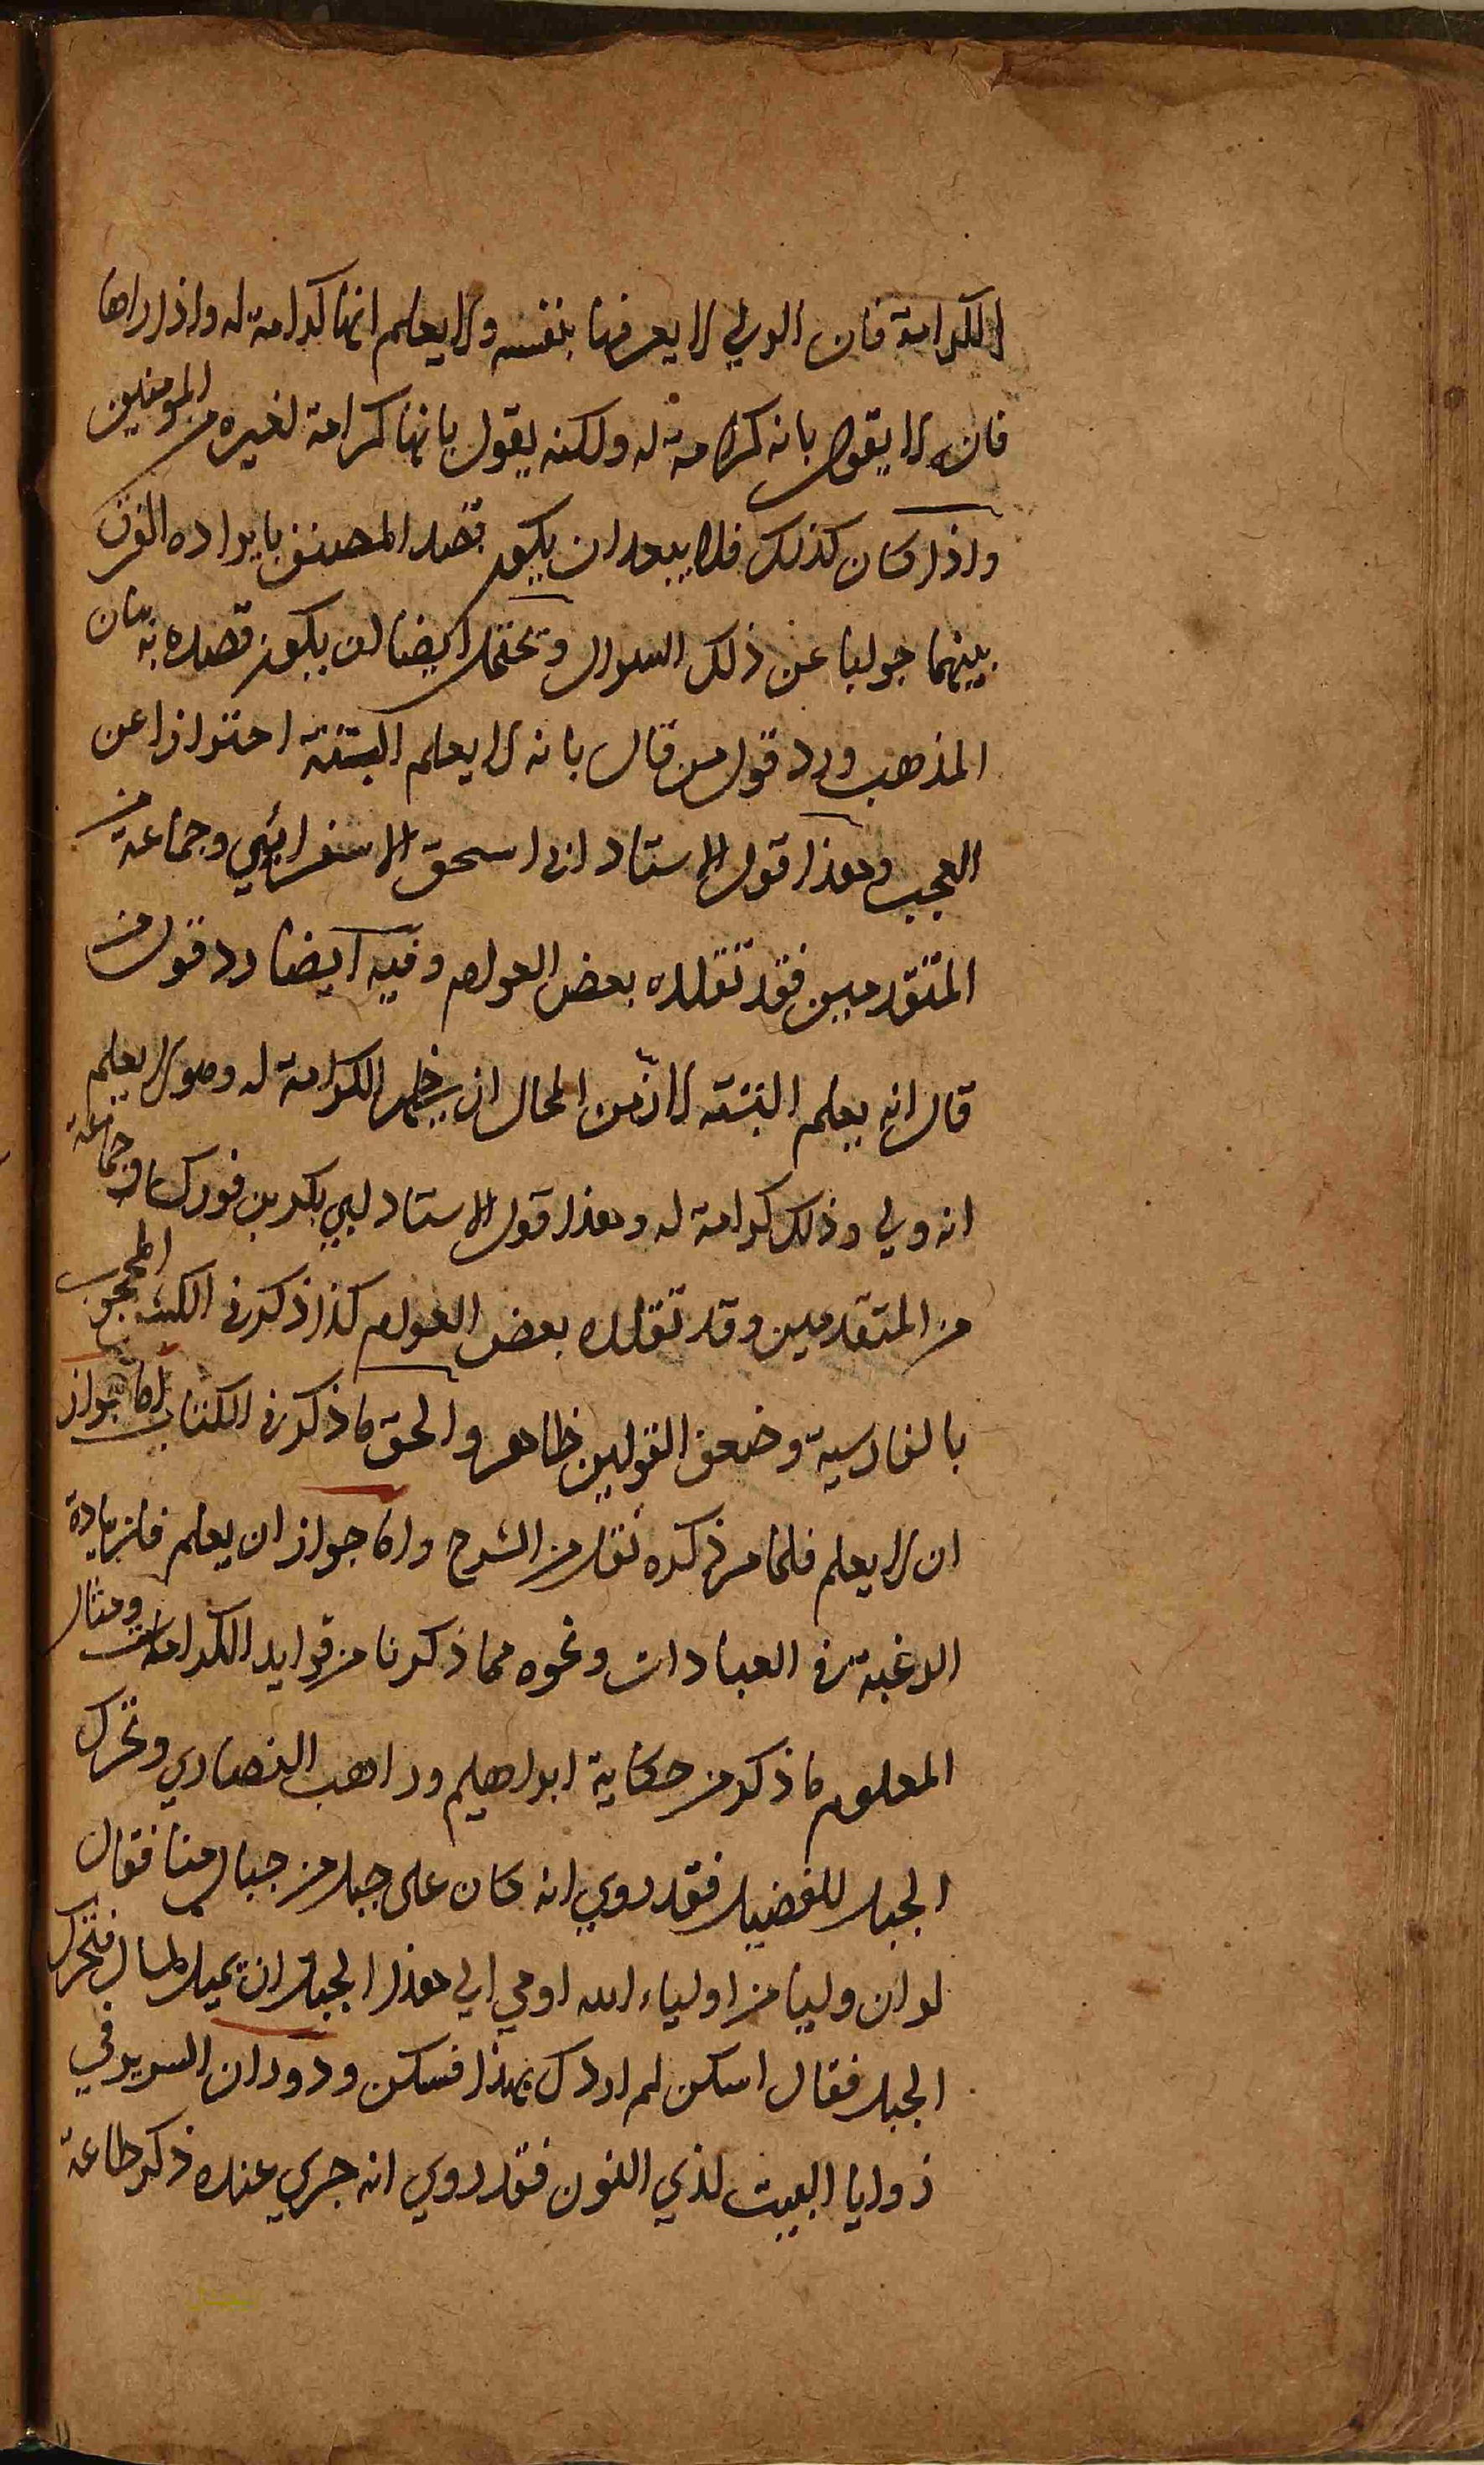 الكرامة فان الولي لا يعرفها بنفسه ولا يعلم انها كرامة له واذا راها
فان لا يقول بانه كرامة له ولكنه يقول بانها كرامة لغيره من المومنين
واذا كان كذلك فلا يبعد ان يكون قصد المصنف بايراده الفرق
بينهما جوابا عن ذلك السوال ويحتمل ايضا ان يكون قصده به بيان
المذهب ورد قول من قال بانه لا يعلم البتة احترازا عن
العجب وهذا قول الاستاد ابى اسحق الاسفرايني وجماعة من
المتقدمين فقد تقلده بعض العوام وفيه ايضا رد قول من
قال انه يعلم البتة لان من المحال ان يظهر الكرامة له وهو لا يعلم
انه ولي وذلك كرامة له وهذا قول الاستاد ابي بكر بن فورك وجماعة
من المتقدمين وقد تقلده بعض العوام كذا ذكر في الكشف المحجوب
بالفارسية وضعف القولين ظاهر والحق ما ذكر في الكتاب اما جواز
ان لا يعلم فلما مر ذكره نقل من الشرح واما جواز ان يعلم فلزيادة
الرغبة في العبادات ونحوه مما ذكرنا من فوايد الكرامات ومثال
المعلوم ما ذكر من حكاية ابراهيم وراهب النصاري وتحرك
الجبل للفضيل فقد روي انه كان على جبل من جبال منا فقال
لو ان وليا من اولياء الله اومي الي هذا الجبل ان يميل لمال فتحرك
الجبل فقال اسكن لم اردك بهذا فسكن ودوران السرير في
زوايا البيت لذي النون فقد روي انه جري عنده ذكر طاعة